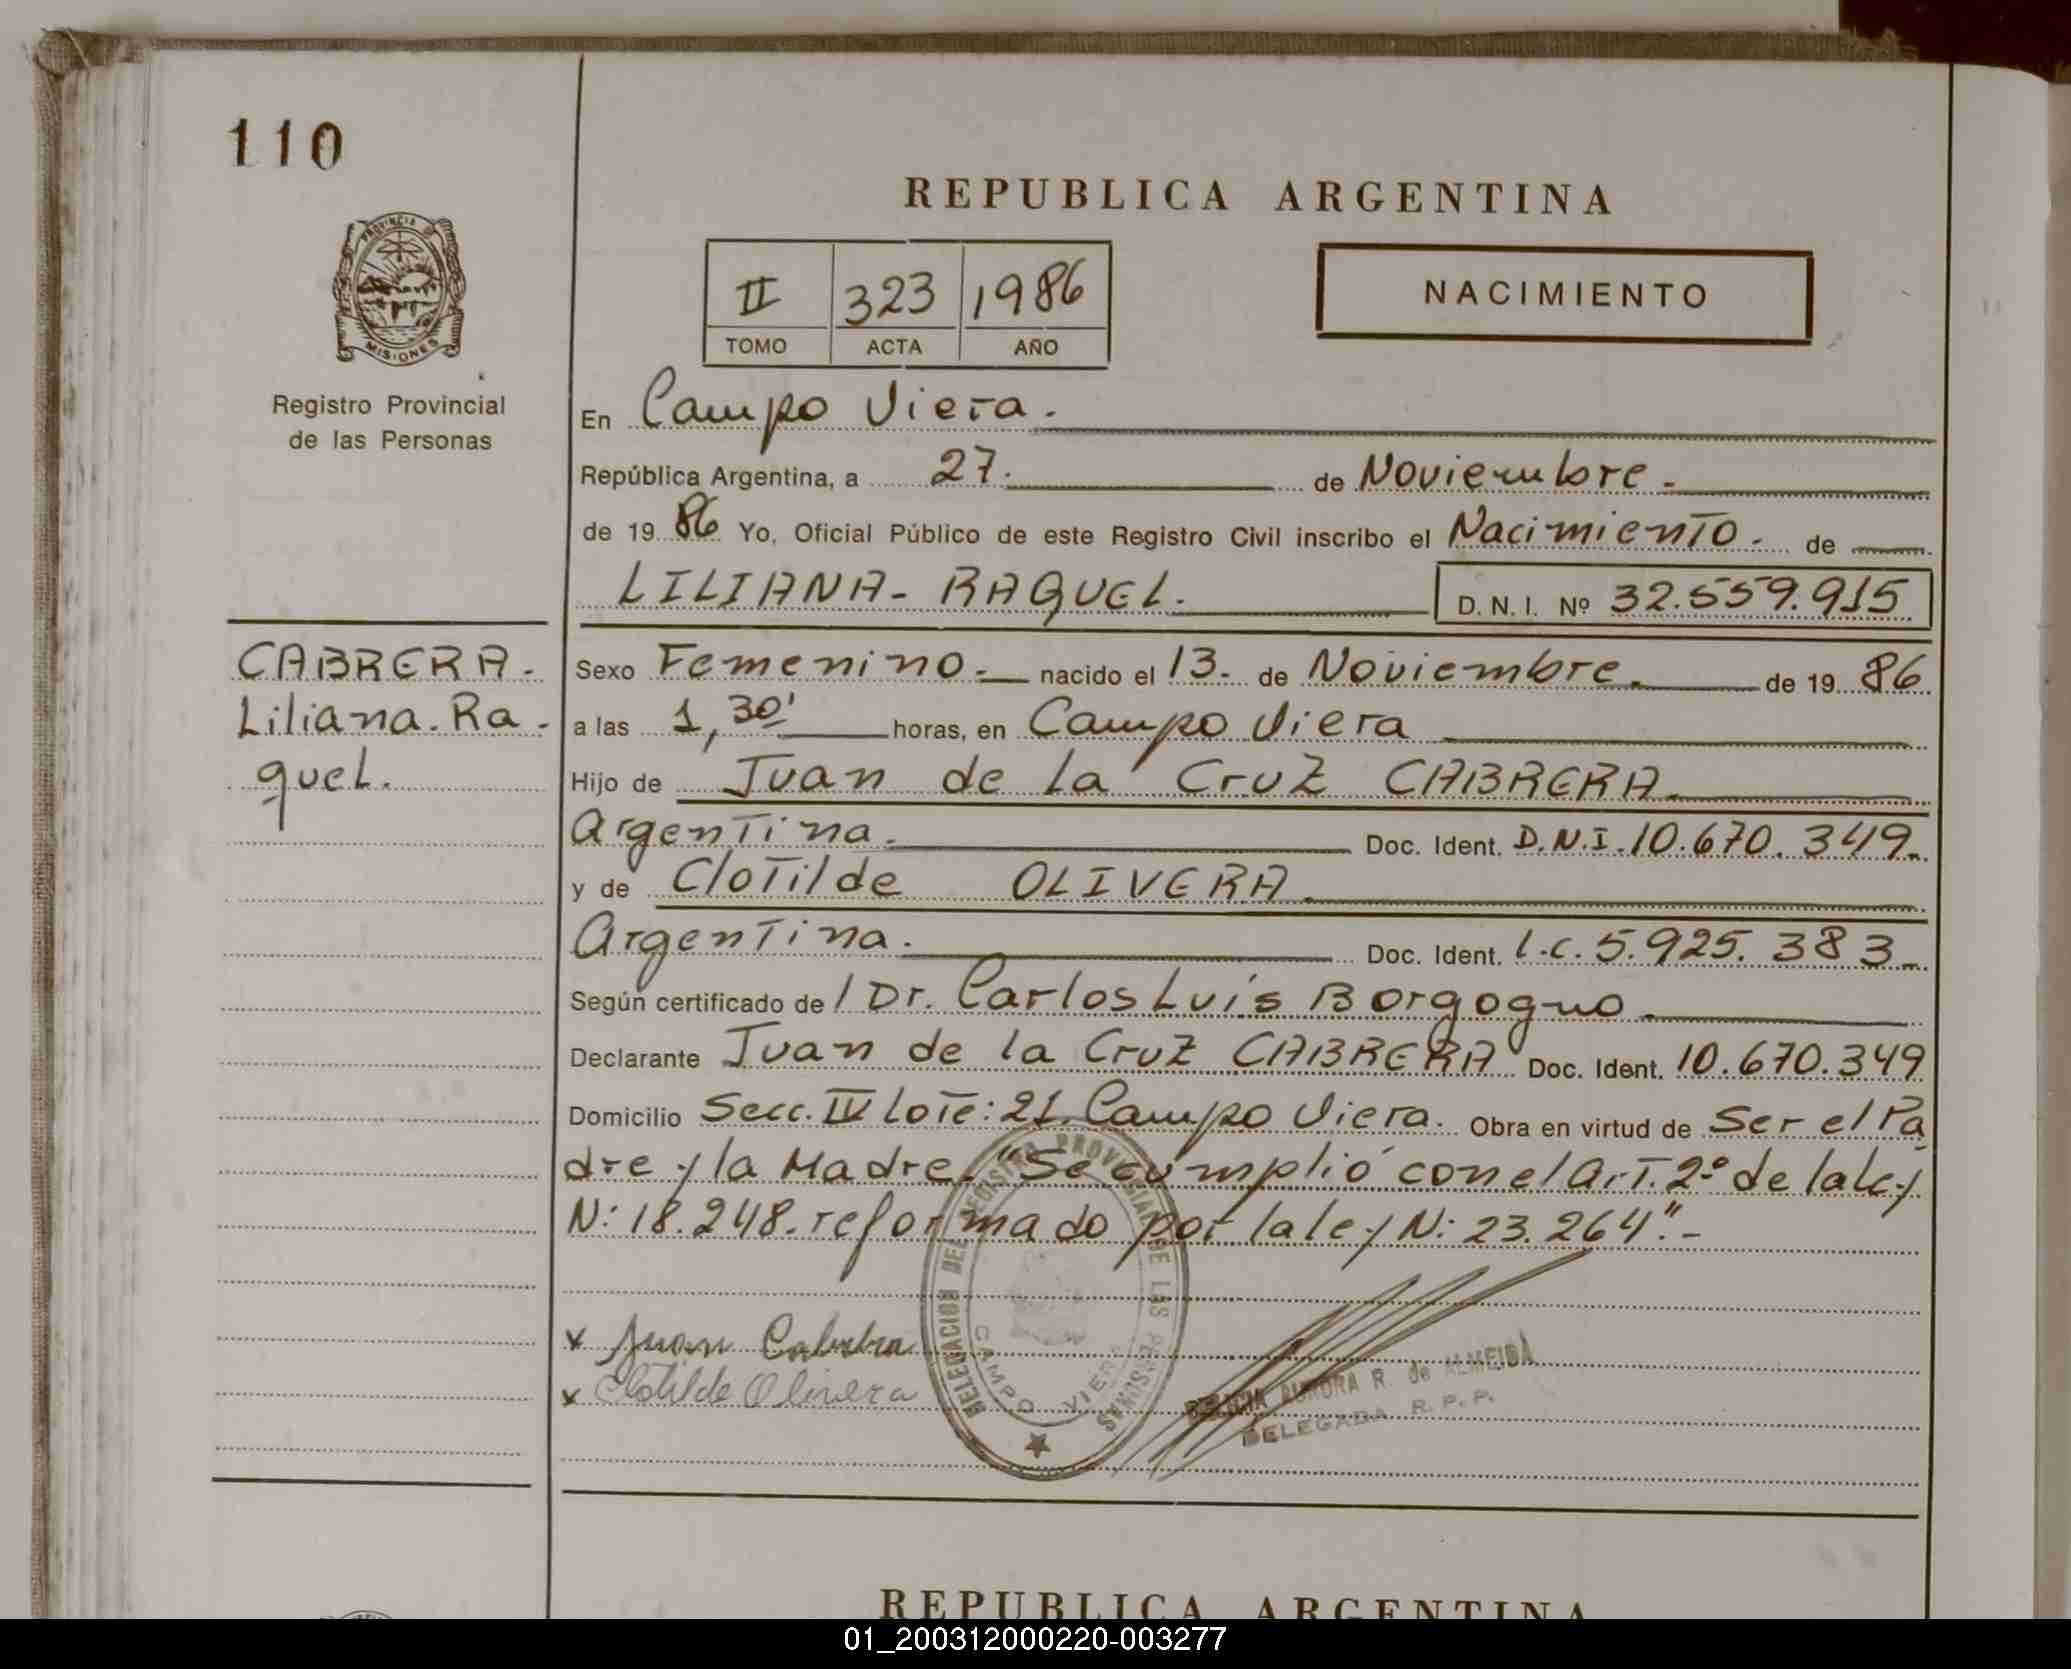 110
PROVINCIA D
MISIONES
Registro Provincial
de las Personas
REPUBLICA ARGENTINA
II 323 1986
TOMO ACTA AÑO
NACIMIENTO
En Campo Viera.
República Argentina, a 27. de Noviembre.
de 19 86 Yo, Oficial Público de este Registro Civil inscribo el Nacimiento. de
LILIANA- RAQUEL. D.N.I. Nº 32.559.915
CABRERA.
Liliana. Ra-
quel.
Sexo Femenino.- nacido el 13- de Noviembre. de 19 86
a las 1,30' horas, en Campo Viera
Hijo de Juan de la Cruz CABRERA.
Argentina. Doc. Ident. D.N.I. 10.670.349.
y de Clotilde OLIVERA.
Argentina. Doc. Ident. L.C. 5.925.383-
Según certificado de / Dr. Carlos Luis Borgogno.
Declarante Juan de la Cruz CABRERA Doc. Ident. 10.670.349
Domicilio Secc. IV lote: 21. Campo Viera. Obra en virtud de Ser el Pa
dre y la Madre. "Se cumplió con el Art. 2º de la ley
N: 18.248. reformado por la ley N: 23.264".-
x Juan Cabrera
x Clotilde Olivera
DELEGACION DEL REGISTRO PROVINCIAL DE LAS PERSONAS
CAMPO VIERA
AURORA R. de ALMEIDA
DELEGADA R.P.P.
REPUBLICA ARGENTINA
01_200312000220-003277